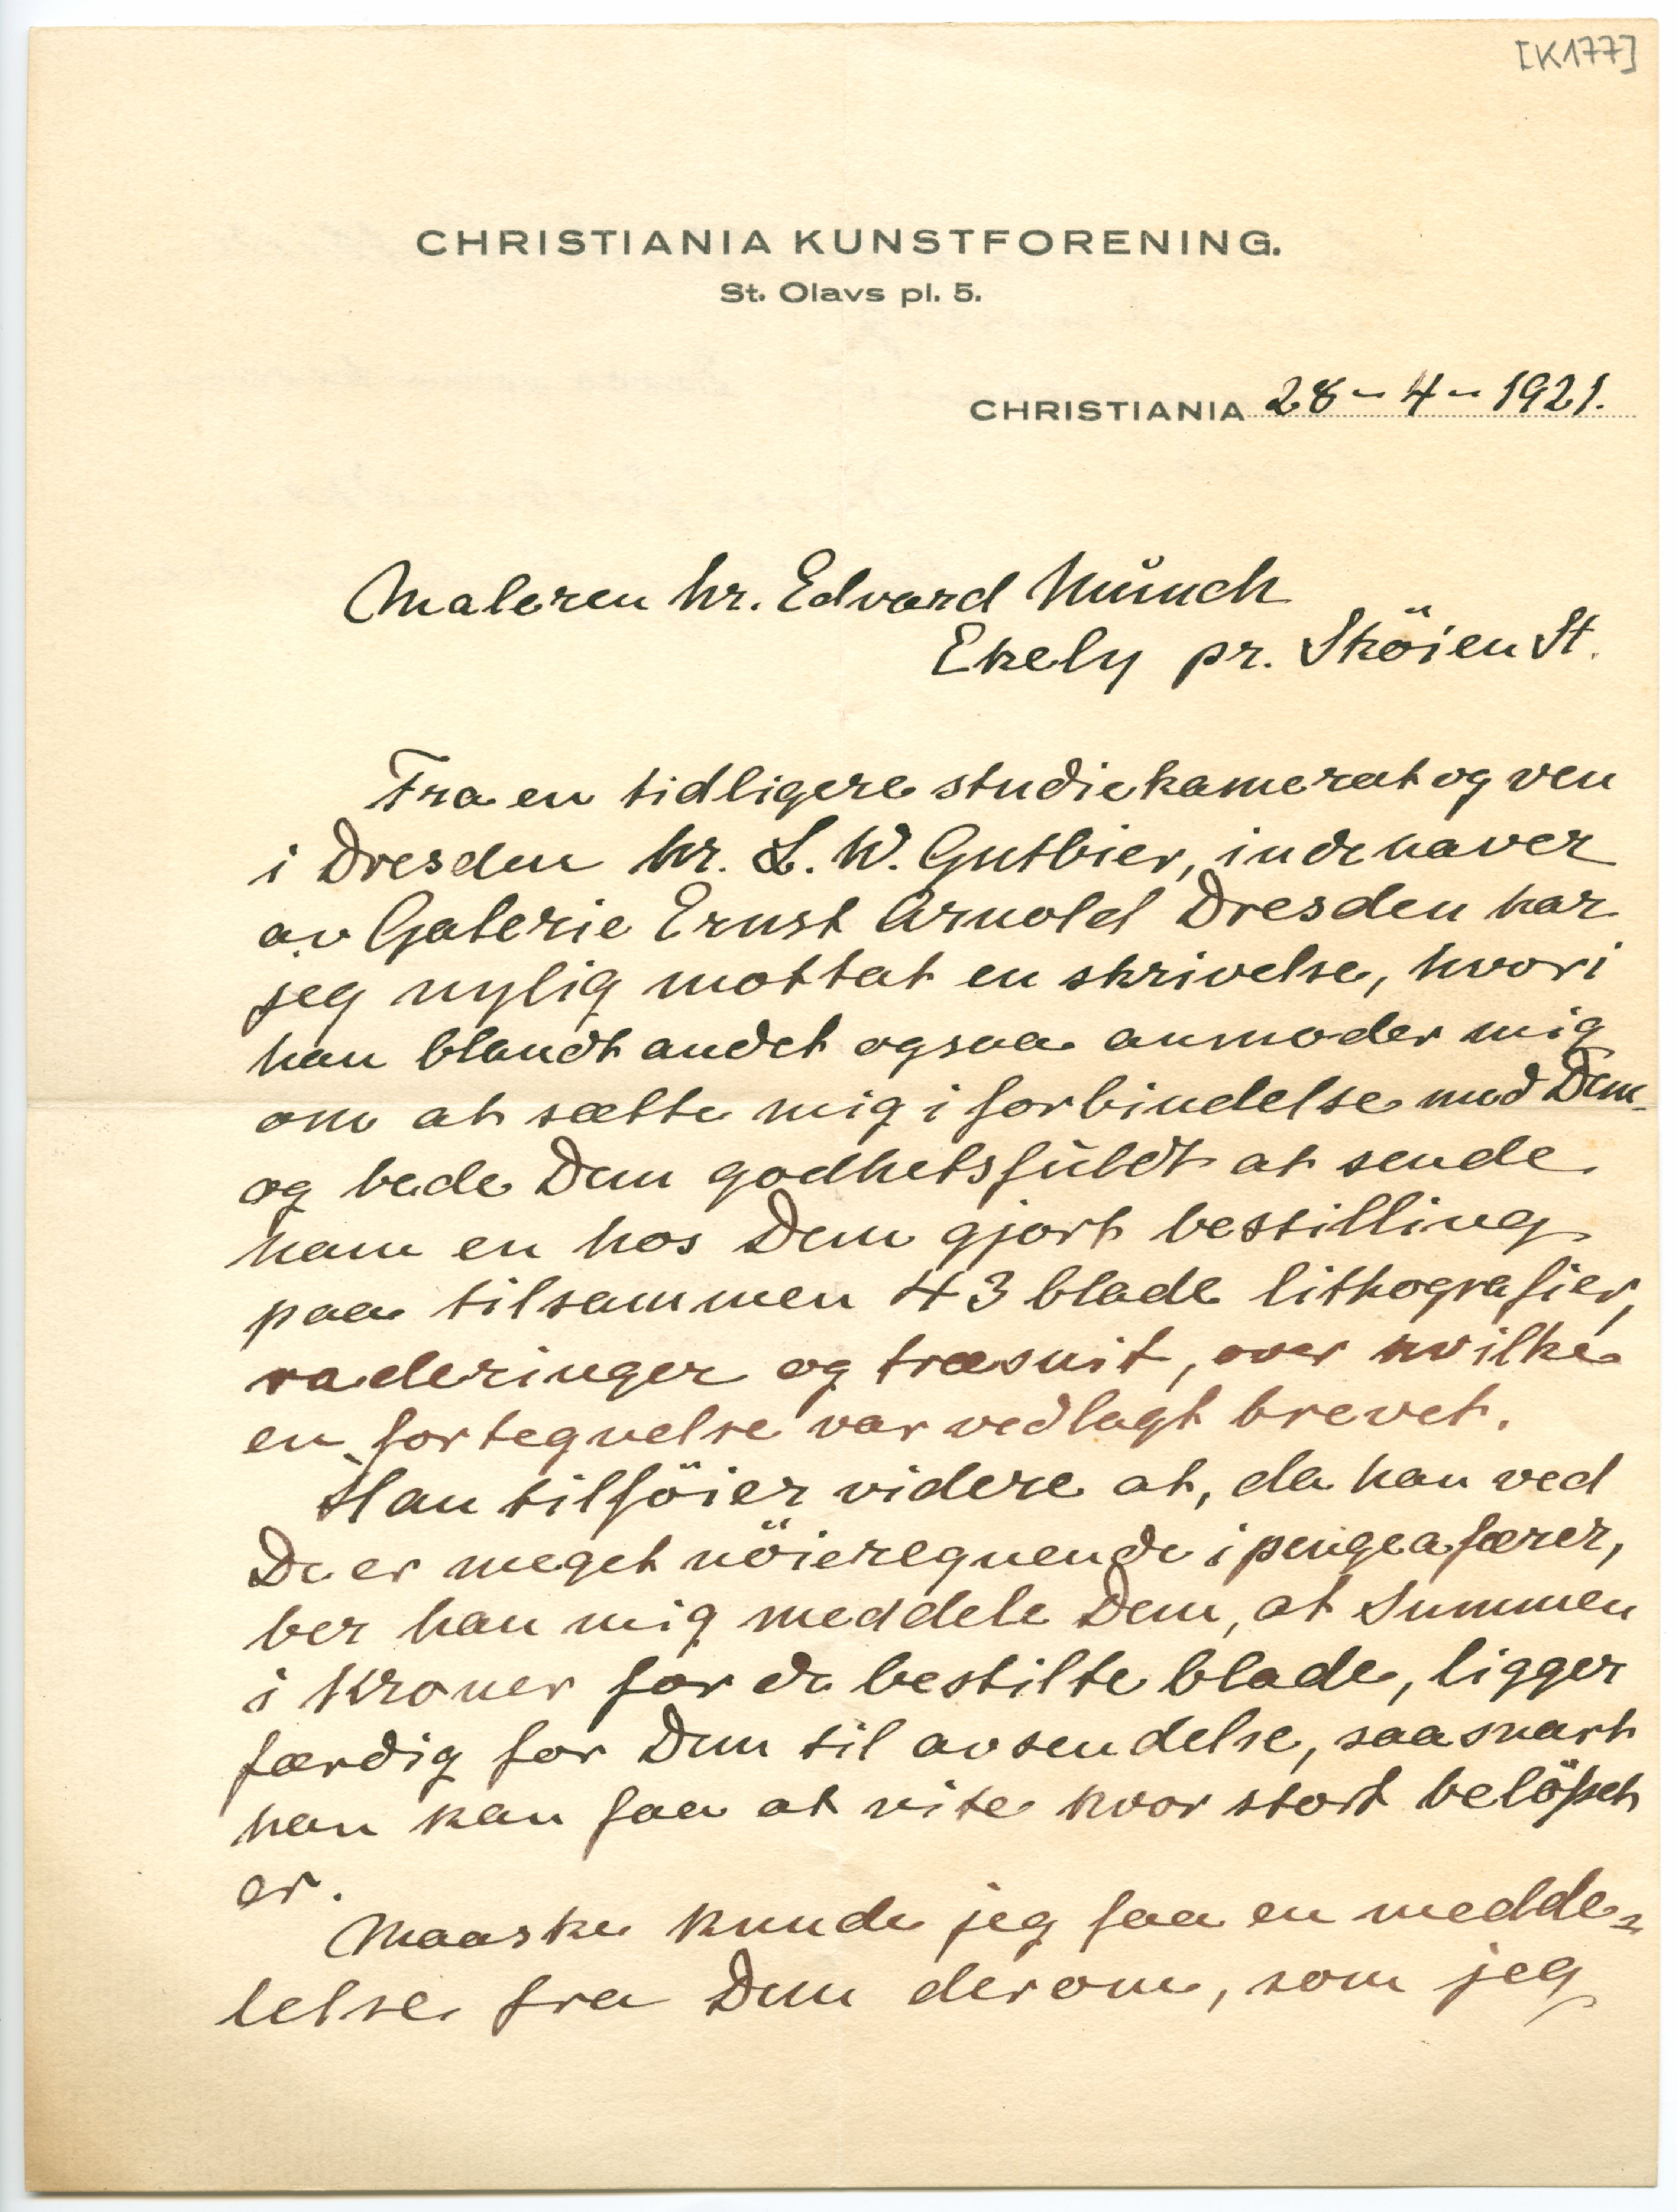 [K177]
CHRISTIANIA KUNSTFORENING.
St. Olavs pl. 5.
CHRISTIANIA 28-4-1921.
Maleren hr. Edvard Münch
Ekely pr. Sköien St.
Fra en tidligere studiekamerat og ven
i Dresden hr. L. W. Gutbier, indehaver
av Galerie Ernst Arnold Dresden har
jeg nylig mottat en skrivelse, hvori
han blandt andet ogsaa anmoder mig
om at sætte mig i forbindelse med Dem
og bede Dem godhetsfuldt at sende
ham en hos Dem gjort bestilling
paa tilsammen 43 blade lithografier,
raderinger og træsnit, over hvilke
en fortegnelse var vedlagt brevet.
Han tilföier videre at, da han ved
De er meget nöieregnende i pengeafærer,
ber han mig meddele Dem, at Summen
i Kroner for de bestilte blade, ligger
færdig for Dem til avsendelse, saasnart
han kan faa at vite hvor stort belöpet
er.
Maaske kunde jeg faa en medde=
lelse fra Dem derom, som jeg